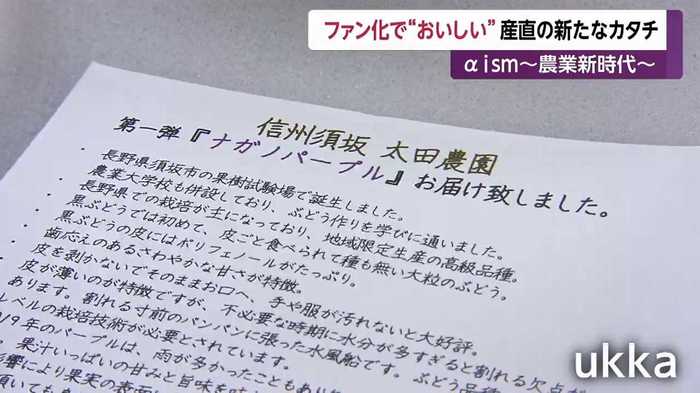 ファン化で“おいしい”産直の新たなカタチ
αism～農業新時代～
信州須坂 太田農園
第一弾『ナガノパープル』お届け致しました。
・長野県須坂市の果樹試験場で誕生しました。
農業大学校も併設しており、ぶどう作りを学びに通いました。
・長野県での栽培が主になっており、地域限定生産の高級品種。
・黒ぶどうでは初めて、皮ごと食べられて種も無い大粒のぶどう。
・黒ぶどうの皮にはポリフェノールがたっぷり。
・歯応えのあるさわやかな甘さが特徴。
・皮を剥かないでそのままお口へ、手や服が汚れないと大好評。
・皮が薄いのが特徴ですが、不必要な時期に水分が多すぎると割れる欠点が
あります。割れる寸前のパンパンに張った水風船です。ぶどう品種
レベルの栽培技術が必要とされています。
19年のパープルは、雨が多かったこともあり
、果汁いっぱいの甘みと旨味を
影響により果実の表面
頂いても
ukka